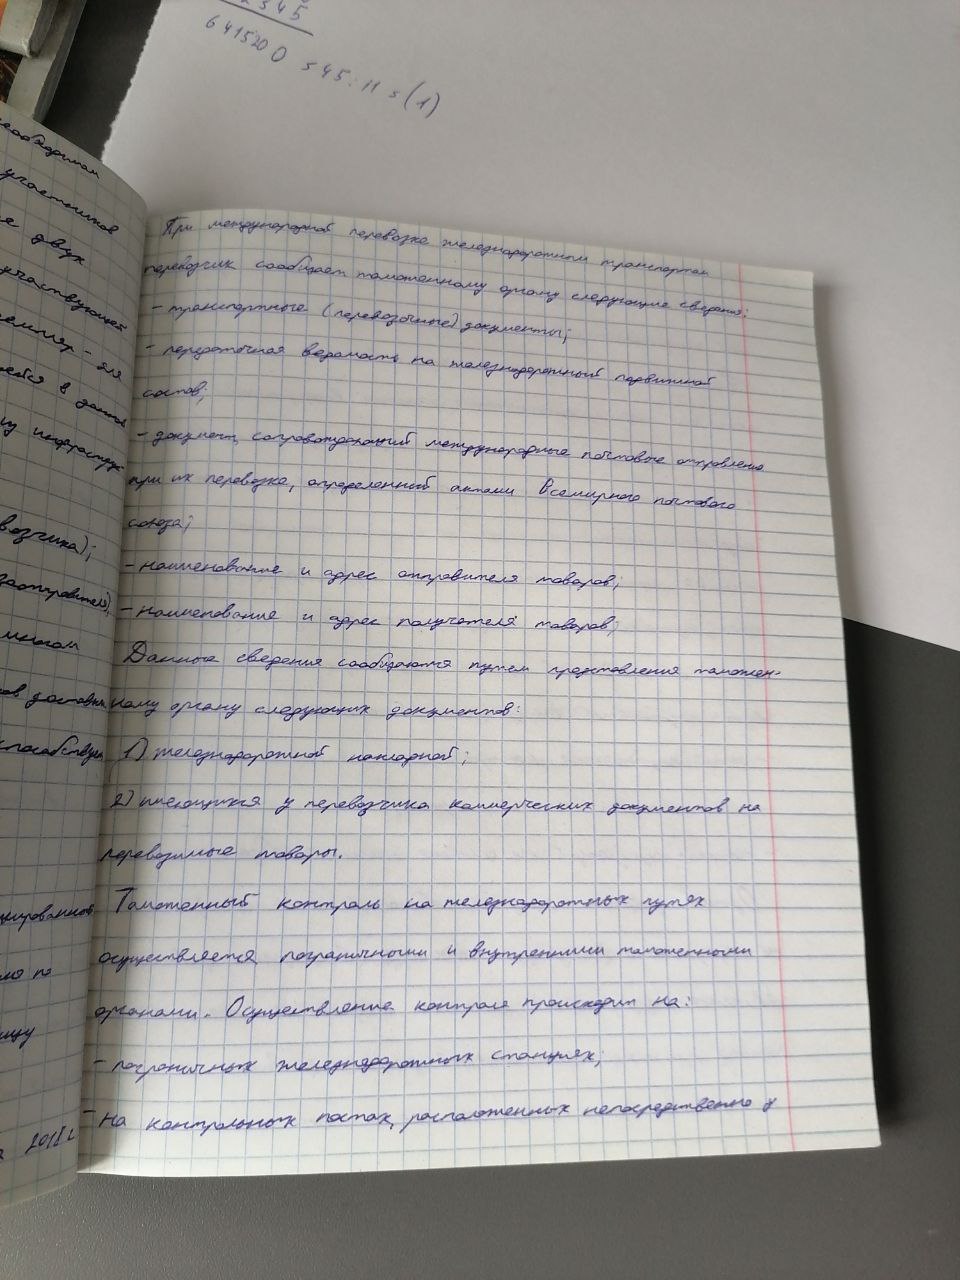 2545
6415200 545:11=(1)
необходимам
участников
двух
участвующей
земпляр - для
в данной
инфраструк
возчика);
зоотправителя);
многом
ов доставки
способствует
цированное
ия по
ницу
2018 г
При международной перевозке железнодорожным транспортом
перевозчик сообщает таможенному органу следующие сведения:
- транспортные (перевозочные) документы;
- передаточная ведомость на железнодорожный подвижной
состав;
- документ, сопровождающий международные почтовые отправлена
при их перевозке, определенный актами Всемирного почтового
союза;
- наименование и адрес отправителя товаров;
- наименование и адрес получателя товаров;
Данные сведения сообщаются путем представления таможен-
ному органу следующих документов:
1) железнодорожной накладной;
2) имеющихся у перевозчика коммерческих документов на
перевозимые товары.
Таможенный контроль на железнодорожных путях
осуществляется пограничными и внутренними таможенными
органами. Осуществление контроля происходит на:
- пограничных железнодорожных станциях;
- на контрольных постах, расположенных непосредственно у